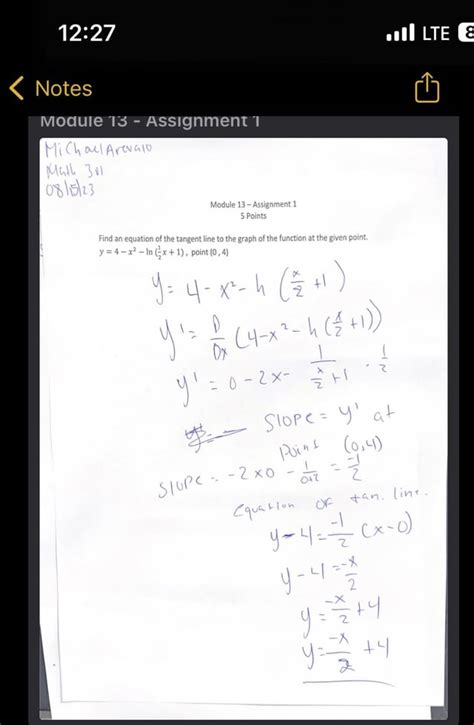 12:27
LTE 8
Notes
Module 13 - Assignment 1
Michael Arevalo
Math 301
08/15/23
Module 13 – Assignment 1
5 Points
Find an equation of the tangent line to the graph of the function at the given point.
y = 4 − x² − ln (½x + 1) , point (0 , 4)
y = 4 - x² - ln (x/2 + 1)
y' = D/Dx (4 - x² - ln (x/2 + 1))
y' = 0 - 2x - 1/(x/2 + 1) · 1/2
Slope = y' at
Point (0,4)
Slope = -2x0 - 1/(0+2) = -1/2
Equation of tan. line.
y - 4 = -1/2 (x - 0)
y - 4 = -x/2
y = -x/2 + 4
y = -x/2 + 4